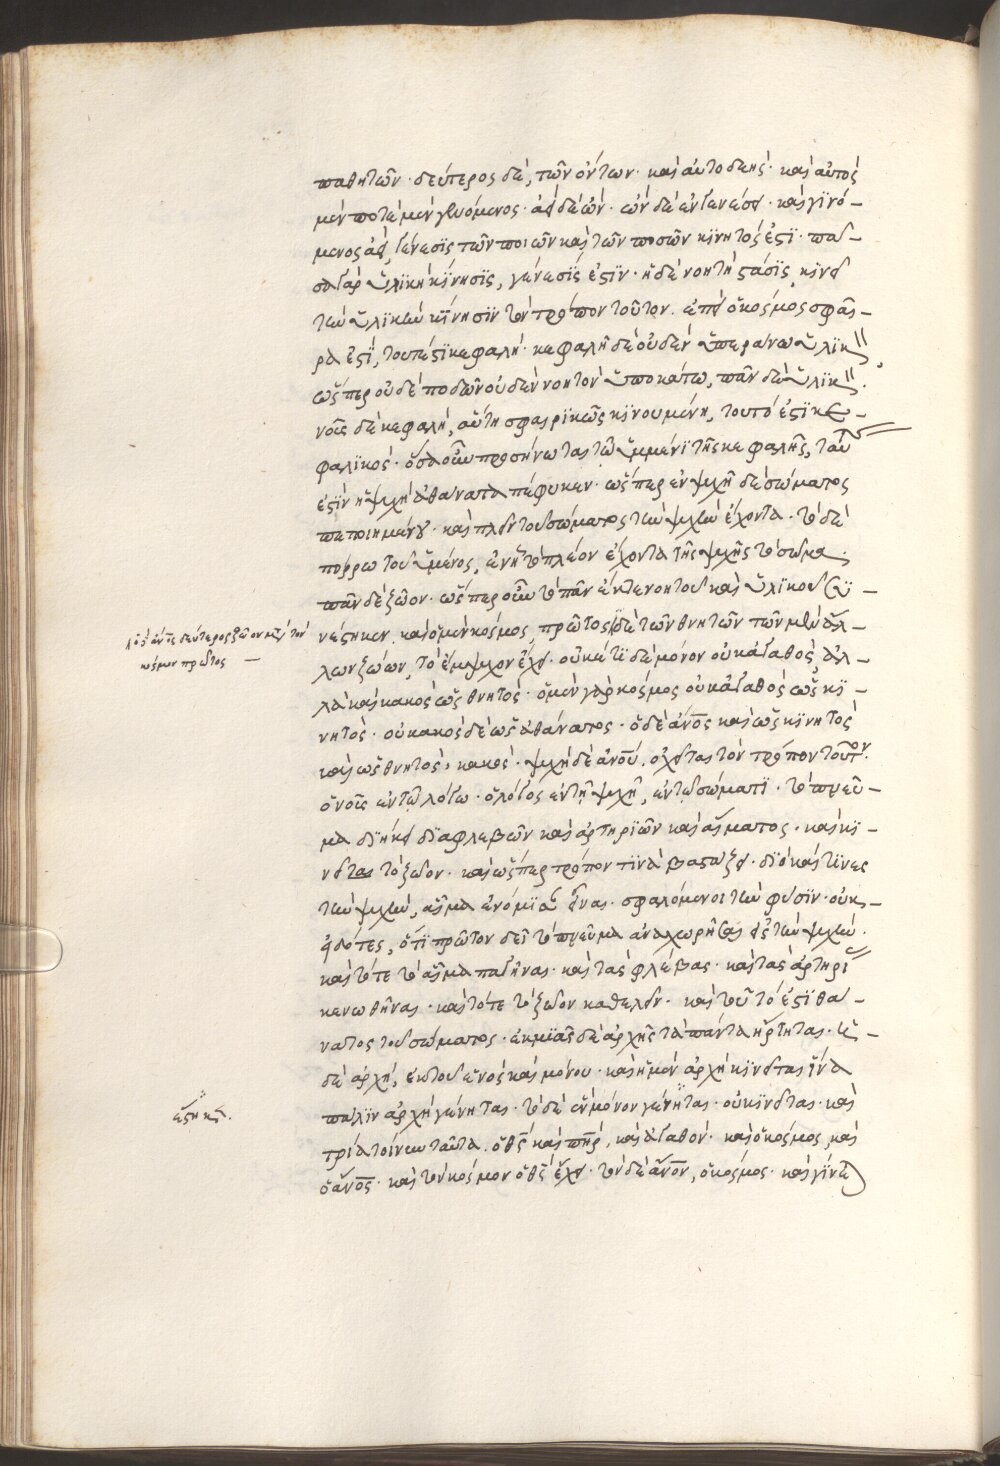 παθητῶν · δεύτερος δὲ, τῶν ὄντων · καὶ αὐτοδεής · καὶ αὐτὸς
μέν ποτὲ μὲν γενόμενος · ἀεὶ δὲ ὤν · ὢν δὲ ἐν γενέσει · καὶ γινό-
μενος ἀεὶ, γένεσις τῶν ποιῶν καὶ τῶν ποσῶν κινητός ἐστι · πᾶ-
σα γὰρ ὑλικὴ κίνησις, γένεσίς ἐστιν · ἡ δὲ νοητὴ στάσις, κινεῖ
τὴν ὑλικὴν κίνησιν τὸν τρόπον τοῦτον · ἐπεὶ ὁ κόσμος σφαῖ-
ρα ἐστὶ, τουτέστι κεφαλή · κεφαλῆ δὲ οὐδὲν ὑπεράνω ὑλικ
ὥσπερ οὐδὲ ποδῶν οὐδὲν νοητὸν ὑποκάτω, πᾶν δὲ ὑλικ
νοῦς δὲ κεφαλὴ, αὕτη σφαιρικῶς κινουμένη, τουτό ἐστι κε-
φαλικός · ὅσα οὖν προσήνωται τῷ ὑμένι τῆς κεφαλῆς, ταυ
ἐστὶν ἡ ψυχὴ ἀθάνατα πέφυκεν · ὥσπερ ἐν ψυχῆ δὲ σώματος
πεποιημένου · καὶ πλεῖν τοῦ σώματος τὴν ψυχὴν ἔχοντα · τὸ δὲ
πόρρω τοῦ ὑμένος, ἐν ᾗ τὸ πλέον ἔχοντα τῆς ψυχῆς τὸ σῶμα
πᾶν δὲ ζῶον · ὥσπερ οὖν τὸ πᾶν ἔκτε νοητοῦ καὶ ὑλικοῦ συ-
νέστηκεν · καὶ ὁ μὲν κόσμος, πρῶτος δὲ τῶν θνητῶν τῶν μὲν ἄλ-
λων ζώων, τὸ ἔμψυχον ἔχει · οὐκέτι δὲ μόνον οὐκ ἀγαθὸς ἀλ-
λὰ καὶ κακὸς ὡς θνητός · ὁ μὲν γὰρ κόσμος οὐκ ἀγαθὸς ὡς κι-
νητός · οὐ κακὸς δὲ ὡς ἀθάνατος · ὁ δὲ ἄνος καὶ ὡς κινητὸς
καὶ ὡς θνητός, κακός · ψυχὴ δὲ ἀνου, ὀχεῖται τὸν τρόπον τοῦτον ·
ὁ νοῦς ἐν τῷ λόγω · ὁ λόγος ἐν τῆ ψυχῆ, ἐν τῷ σώματι · τὸ πνεῦ-
μα διήκει διὰ φλεβῶν καὶ ἀρτηριῶν καὶ αἵματος · καὶ κι-
νεῖται τὸ ζῶον · καὶ ὥσπερ τρόπον τινὰ βαστάζει · διὸ καί τινες
τὴν ψυχὴν, αἷμα ἐνόμισαν εἶναι · σφαλόμενοι τὴν φύσιν · οὐκ-
εἰδότες, ὅτι πρῶτον δεῖ τὸ πνεῦμα ἀναχωρῆσαι εἰς τὴν ψυχήν ·
καὶ τότε τὸ αἷμα παγῆναι · καὶ τὰς φλέβας · καὶ τὰς ἀρτηρί
κενωθῆναι · καὶ τότε τὸ ζῶον καθελεῖν · καὶ τοῦτό ἐστι θά-
νατος τοῦ σώματος · ἐκ μιᾶς δὲ ἀρχῆς τὰ πάντα ἤρτηται · ἡ-
δὲ ἀρχὴ, ἐκ τοῦ ἑνὸς καὶ μόνου · καὶ ἡ μὲν ἀρχὴ κινεῖται ἵνα
πάλιν ἀρχὴ γένηται · τὸ δὲ ἓν μόνον γένηται · οὐ κινεῖται · καὶ
τρία τοίνυν ταῦτα · ὁ θς καὶ πηρ, καὶ ἀγαθόν · καὶ ὁ κόσμος, καὶ
ὁ ἄνος · καὶ τὸν κόσμον ὁ θς ἔχει · τὸν δὲ ἄνον, ὁ κόσμος · καὶ γίνε
δεύτερος ζῶον μετὰ τὸν
κόσμον πρῶτος —